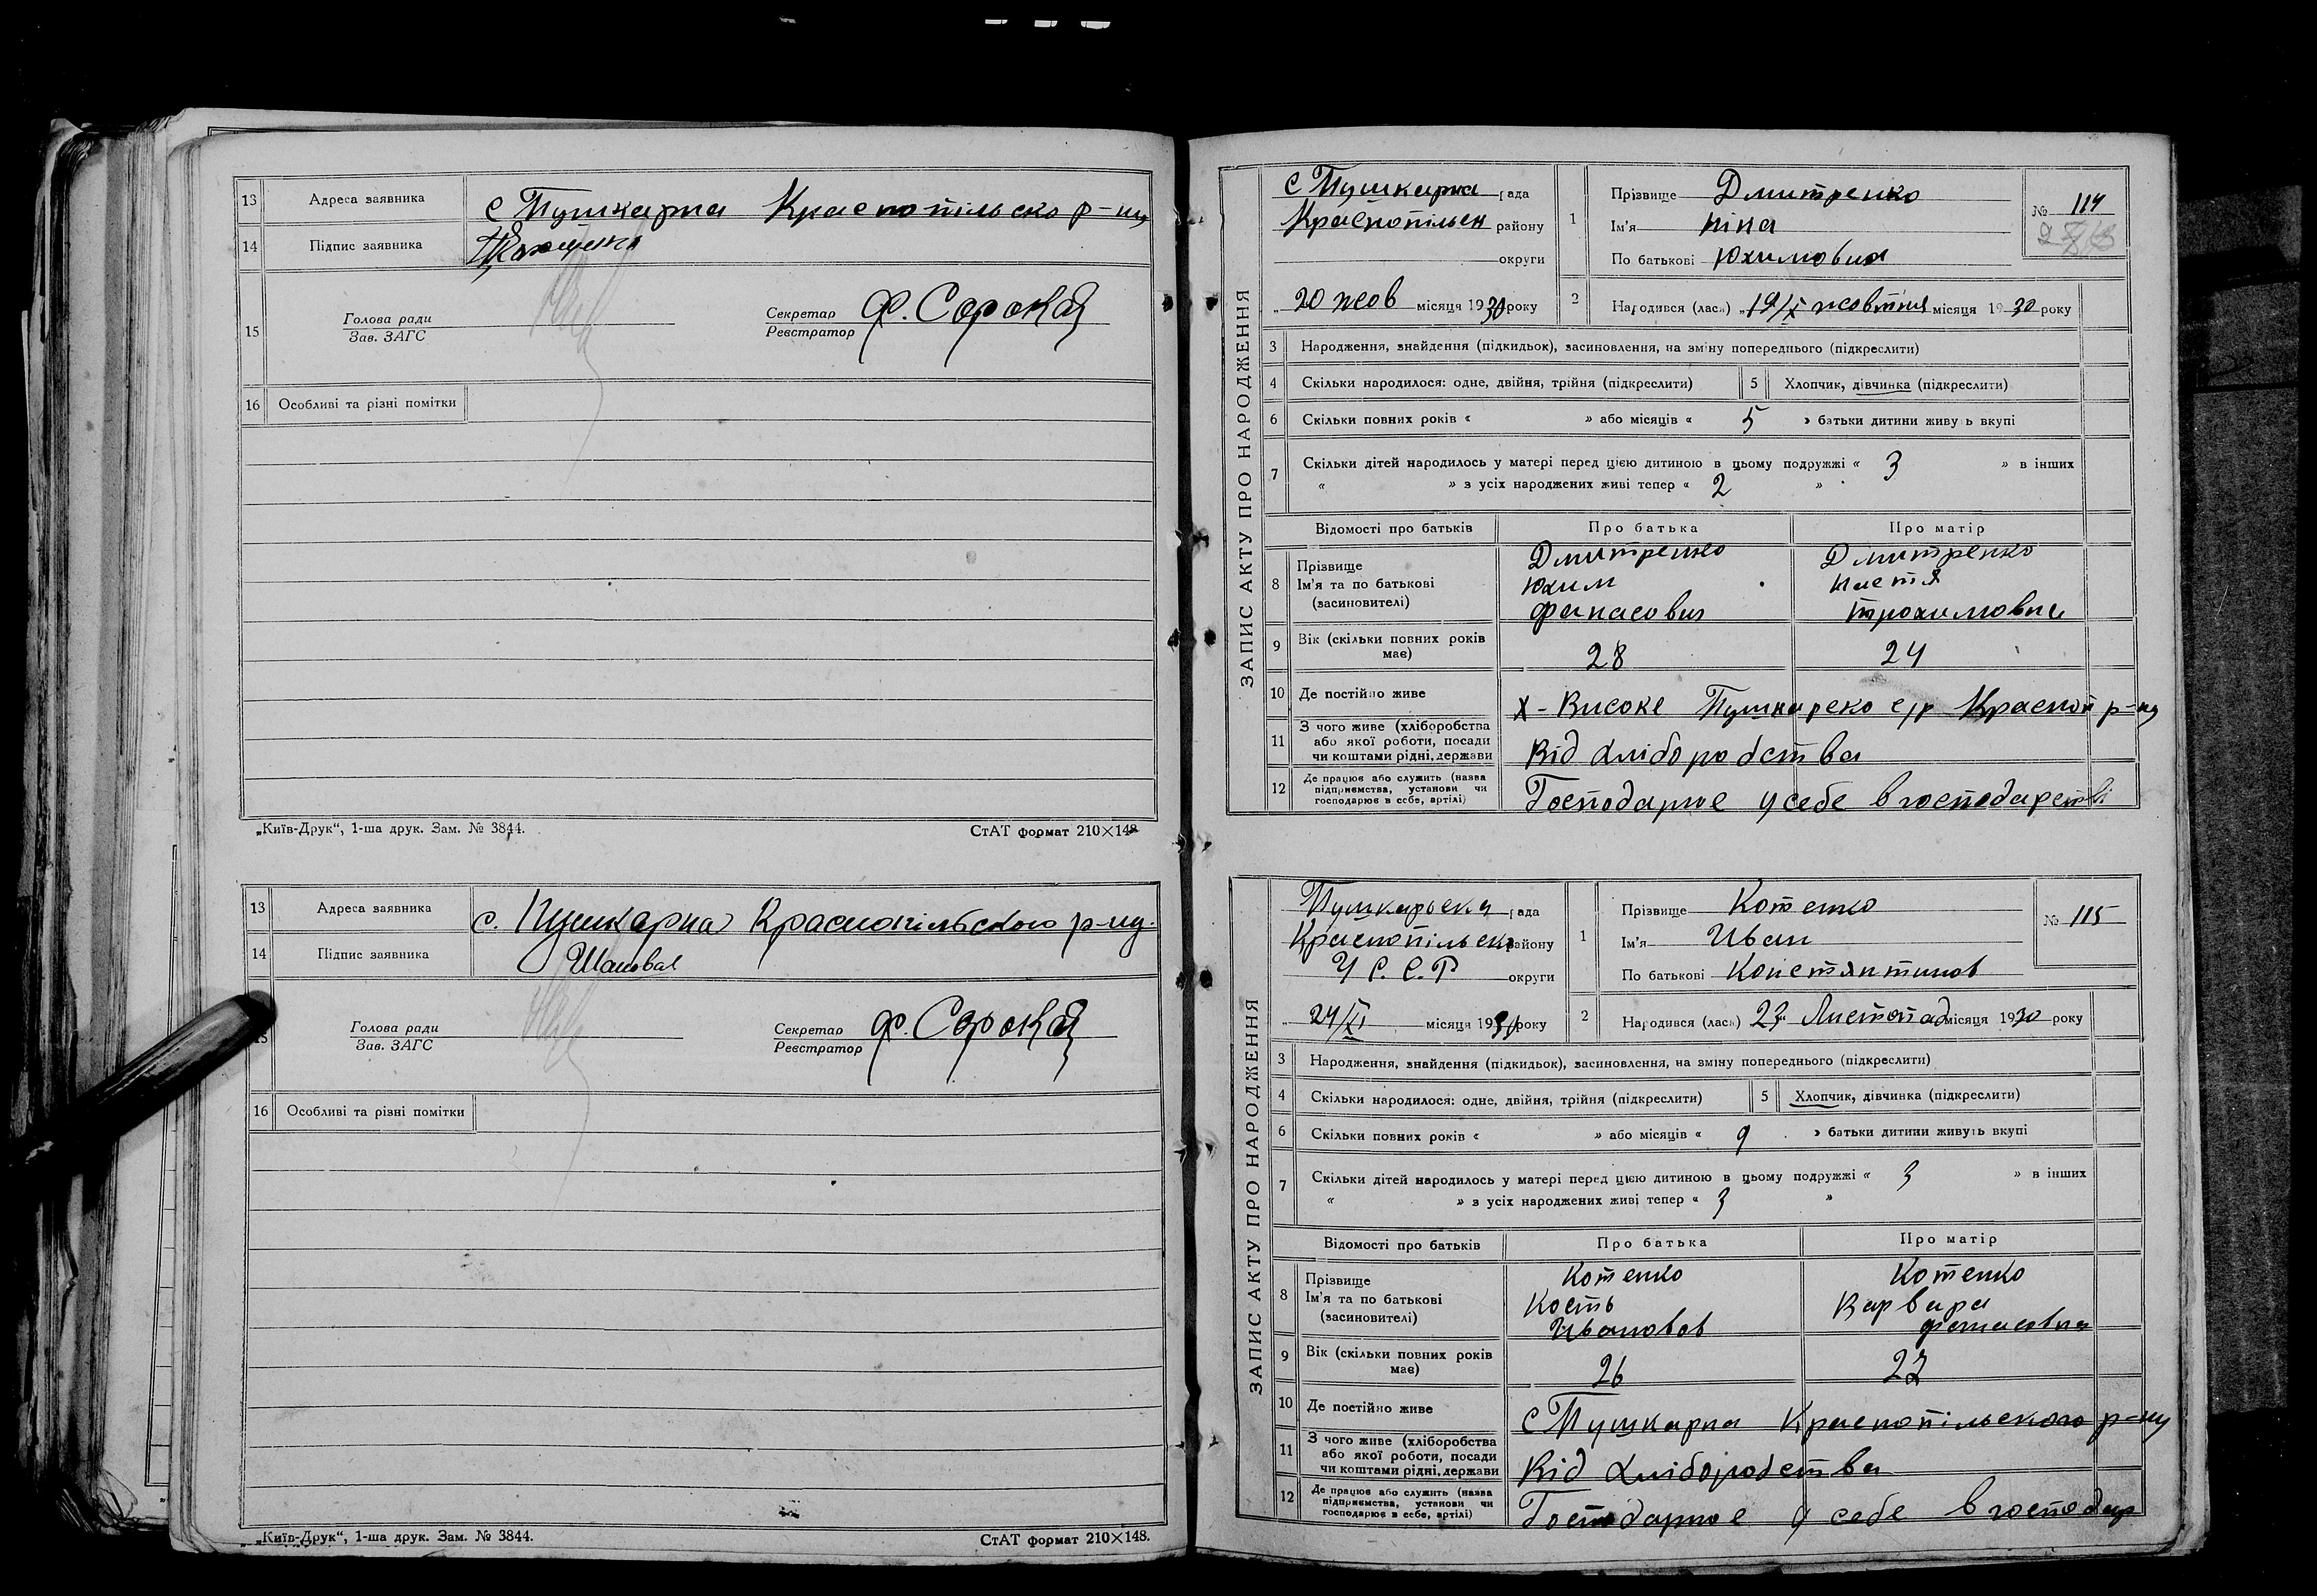 13 Адреса заявника с Пушкарна Краснопільско р-ну
14 Підпис заявника
15 Голова ради Секретар Ф. Сорока
Зав. ЗАГС Реєстратор
16 Особливі та різні помітки
„Київ-Друк“, 1-ша друк. Зам. № 3844. СтАТ формат 210×148
13 Адреса заявника с. Пушкарна Краснопільського р-ну.
14 Підпис заявника
15 Голова ради Секретар Ф. Сорока
Зав. ЗАГС Реєстратор
16 Особливі та різні помітки
„Київ-Друк“, 1-ша друк. Зам. № 3844. СтАТ формат 210×148.
ЗАПИС АКТУ ПРО НАРОДЖЕННЯ
с Пушкарна рада
Краснопільськ району
округи
„ 20 жов місяця 1930 року
1 Прізвище Дмитренко
Ім'я Ніна
По батькові Юхимовна
№ 114
2 Народився (лась) „19/X жовтня місяця 1930 року
3 Народження, знайдення (підкидьок), засиновлення, на зміну попереднього (підкреслити)
4 Скільки народилося: одне, двійня, трійня (підкреслити) 5 Хлопчик, дівчинка (підкреслити)
6 Скільки повних років « » або місяців « 5 » батьки дитини живуть вкупі
7 Скільки дітей народилось у матері перед цією дитиною в цьому подружжі « 3 » в інших
« » з усіх народжених живі тепер « 2 »
Відомості про батьків Про батька Про матір
8 Прізвище Дмитренко Дмитренко
Ім'я та по батькові Юхим Настя
(засиновителі) Фанасович Трохимовна
9 Вік (скільки повних років має) 28 24
10 Де постійно живе х - Високе Пушкарско с/р Краснопі р-ну
11 З чого живе (хліборобства
або якої роботи, посади
чи коштами рідні, держави Від хліборобства
12 Де працює або служить (назва
підприємства, установи чи
господарює в себе, артілі) Господарює у себе в господарстві
ЗАПИС АКТУ ПРО НАРОДЖЕННЯ
Пушкарська рада
Краснопільско району
У С. С. Р округи
„ 24/XI місяця 1930 року
1 Прізвище Котенко
Ім'я Иван
По батькові Констянтинов
№ 115
2 Народився (лась) 23 Листопад місяця 1930 року
3 Народження, знайдення (підкидьок), засиновлення, на зміну попереднього (підкреслити)
4 Скільки народилося: одне, двійня, трійня (підкреслити) 5 Хлопчик, дівчинка (підкреслити)
6 Скільки повних років « » або місяців « 9 » батьки дитини живуть вкупі
7 Скільки дітей народилось у матері перед цією дитиною в цьому подружжі « 3 » в інших
« » з усіх народжених живі тепер « 3 »
Відомості про батьків Про батька Про матір
8 Прізвище Котенко Котенко
Ім'я та по батькові Кость Варвара
(засиновителі) Ивановов Фанасовна
9 Вік (скільки повних років має) 26
10 Де постійно живе с Пушкарна Краснопільського р-ну
11 З чого живе (хліборобства
або якої роботи, посади
чи коштами рідні, держави Від хліборобства
12 Де працює або служить (назва
підприємства, установи чи
господарює в себе, артілі) Господарює у себе в господар